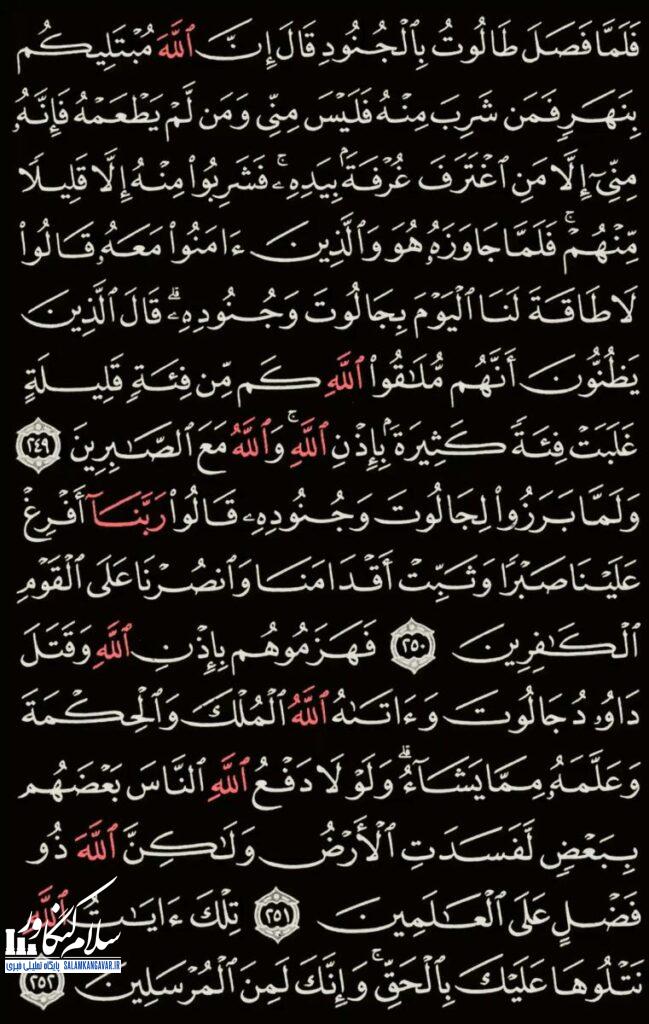 فَلَمَّا فَصَلَ طَالُوتُ بِٱلْجُنُودِ قَالَ إِنَّ ٱللَّهَ مُبْتَلِيكُم
بِنَهَرٍ فَمَن شَرِبَ مِنْهُ فَلَيْسَ مِنِّى وَمَن لَّمْ يَطْعَمْهُ فَإِنَّهُۥ
مِنِّىٓ إِلَّا مَنِ ٱغْتَرَفَ غُرْفَةًۢ بِيَدِهِۦ ۚ فَشَرِبُوا۟ مِنْهُ إِلَّا قَلِيلًا
مِّنْهُمْ ۚ فَلَمَّا جَاوَزَهُۥ هُوَ وَٱلَّذِينَ ءَامَنُوا۟ مَعَهُۥ قَالُوا۟
لَا طَاقَةَ لَنَا ٱلْيَوْمَ بِجَالُوتَ وَجُنُودِهِۦ ۚ قَالَ ٱلَّذِينَ
يَظُنُّونَ أَنَّهُم مُّلَـٰقُوا۟ ٱللَّهِ كَم مِّن فِئَةٍ قَلِيلَةٍ
غَلَبَتْ فِئَةً كَثِيرَةًۢ بِإِذْنِ ٱللَّهِ ۗ وَٱللَّهُ مَعَ ٱلصَّـٰبِرِينَ ٢٤٩
وَلَمَّا بَرَزُوا۟ لِجَالُوتَ وَجُنُودِهِۦ قَالُوا۟ رَبَّنَآ أَفْرِغْ
عَلَيْنَا صَبْرًا وَثَبِّتْ أَقْدَامَنَا وَٱنصُرْنَا عَلَى ٱلْقَوْمِ
ٱلْكَـٰفِرِينَ ٢٥٠ فَهَزَمُوهُم بِإِذْنِ ٱللَّهِ وَقَتَلَ
دَاوُۥدُ جَالُوتَ وَءَاتَىٰهُ ٱللَّهُ ٱلْمُلْكَ وَٱلْحِكْمَةَ
وَعَلَّمَهُۥ مِمَّا يَشَآءُ ۗ وَلَوْلَا دَفْعُ ٱللَّهِ ٱلنَّاسَ بَعْضَهُم
بِبَعْضٍ لَّفَسَدَتِ ٱلْأَرْضُ وَلَـٰكِنَّ ٱللَّهَ ذُو
فَضْلٍ عَلَى ٱلْعَـٰلَمِينَ ٢٥١ تِلْكَ ءَايَـٰتُ ٱللَّهِ
نَتْلُوهَا عَلَيْكَ بِٱلْحَقِّ ۚ وَإِنَّكَ لَمِنَ ٱلْمُرْسَلِينَ ٢٥٢
سلام کنگاور
پایگاه تحلیلی خبری SALAMKANGAVAR.IR